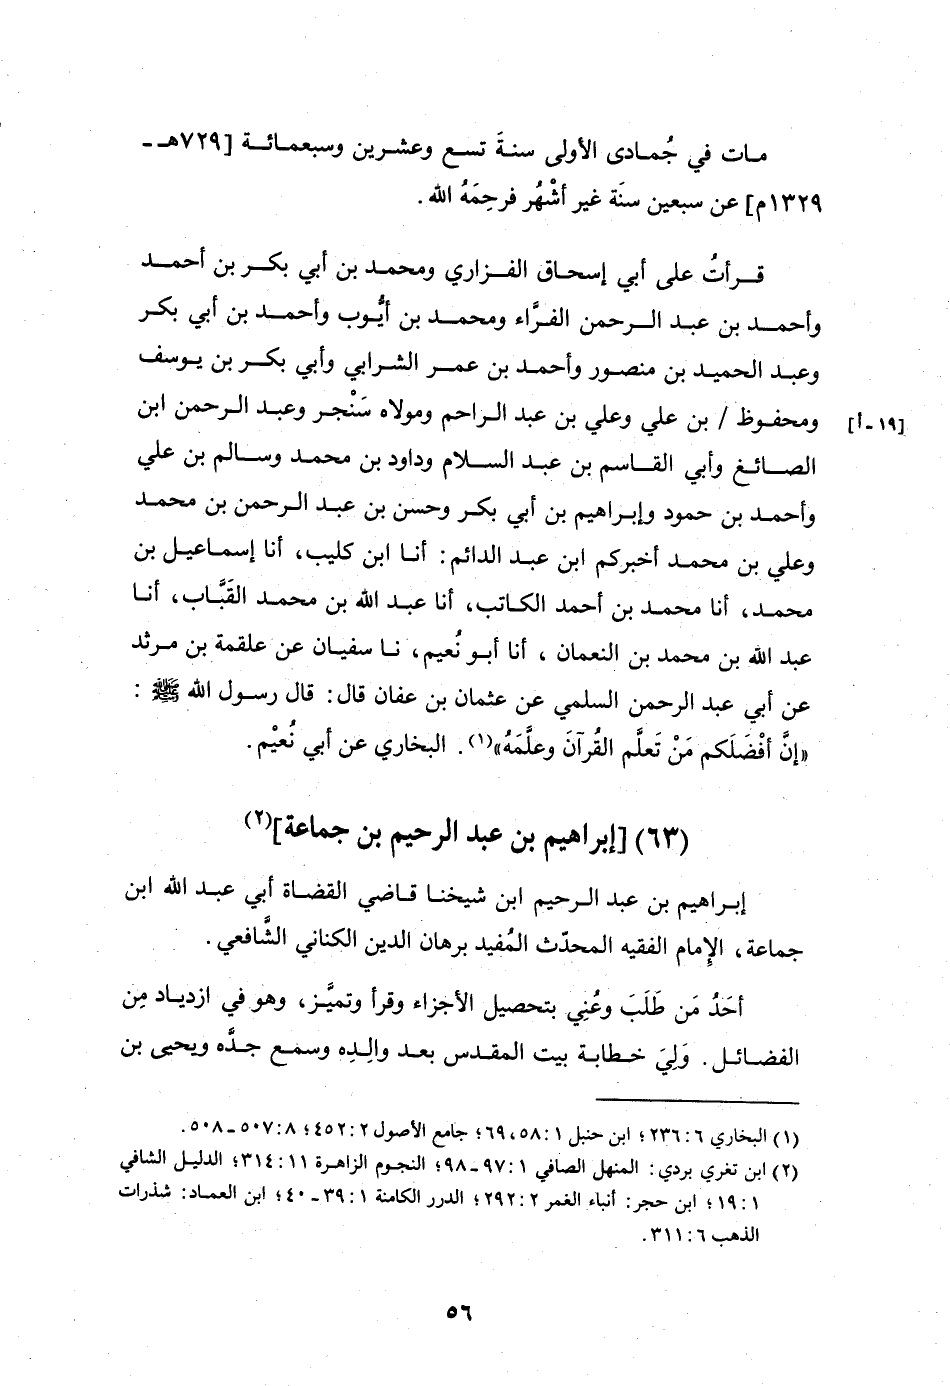 مات في جُمادى الأولى سنةَ تسع وعشرين وسبعمائة [٧٢٩هـ -
١٣٢٩م] عن سبعين سنَة غير أشْهُر فرحِمَهُ الله.
قرأتُ على أبي إسحاق الفزاري ومحمد بن أبي بكر بن أحمد
وأحمد بن عبد الرحمن الفرَّاء ومحمد بن أيُّوب وأحمد بن أبي بكر
وعبد الحميد بن منصور وأحمد بن عمر الشرابي وأبي بكر بن يوسف
ومحفوظ / بن علي وعلي بن عبد الراحم ومولاه سَنْجر وعبد الرحمن ابن [١٩ - أ]
الصائغ وأبي القاسم بن عبد السلام وداود بن محمد وسالم بن علي
وأحمد بن حمود وإبراهيم بن أبي بكر وحسن بن عبد الرحمن بن محمد
وعلي بن محمد أخبركم ابن عبد الدائم: أنا ابن كليب، أنا إسماعيل بن
محمد، أنا محمد بن أحمد الكاتب، أنا عبد الله بن محمد القَبَّاب، أنا
عبد الله بن محمد بن النعمان، أنا أبو نُعيم، نا سفيان عن علقمة بن مرثد
عن أبي عبد الرحمن السلمي عن عثمان بن عفان قال: قال رسول الله ﷺ:
«إنَّ أفْضَلَكم مَنْ تَعلَّم القُرآنَ وعلَّمَهُ»(١). البخاري عن أبي نُعيْم.
(٦٣) [إبراهيم بن عبد الرحيم بن جماعة](٢)
إبراهيم بن عبد الرحيم ابن شيخنا قاضي القضاة أبي عبد الله ابن
جماعة، الإمام الفقيه المحدّث المُفيد برهان الدين الكناني الشَّافعي.
أحَدُ مَن طَلَبَ وعُنِي بتحصيل الأجزاء وقرأ وتميَّز، وهو في ازدياد مِن
الفضائل. وَلِيَ خطابة بيت المقدس بعد والِدِه وسمع جدَّه ويحيى بن
(١) البخاري ٦: ٢٣٦؛ ابن حنبل ١: ٥٨، ٦٩؛ جامع الأصول ٢: ٤٥٢؛ ٨: ٥٠٧ - ٥٠٨.
(٢) ابن تغري بردي: المنهل الصافي ١: ٩٧ - ٩٨؛ النجوم الزاهرة ١١: ٣١٤؛ الدليل الشافي
١: ١٩؛ ابن حجر: أنباء الغمر ٢: ٢٩٢؛ الدرر الكامنة ١: ٣٩ - ٤٠؛ ابن العماد: شذرات
الذهب ٦: ٣١١.
٥٦